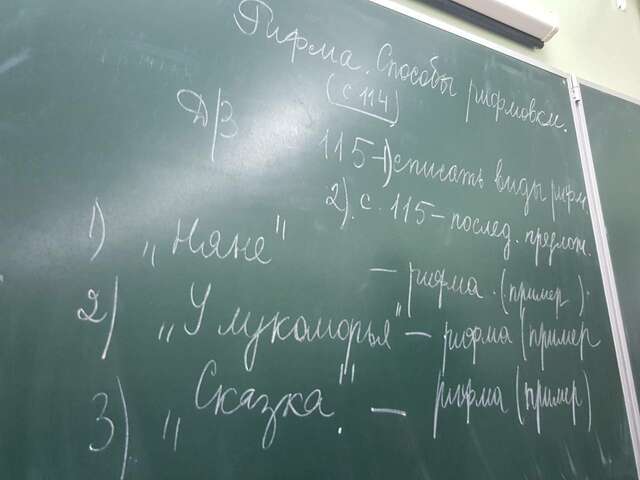 Рифма. Способы рифмовки.
(с 114)
Д/З
115-1) списать виды рифм.
2). с. 115 – послед. предлож.
1) „Няне" – рифма. (пример).
2) „У лукоморья" – рифма (пример
3) „Сказка." – рифма (пример)